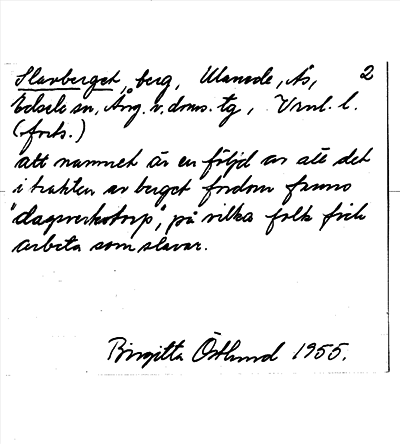 Slavberget, berg, Ulanede, Ås, 2
Edsele sn, Ång. v. doms. tg, Vrnl. l.
(forts.)
att namnet är en följd av att det
i trakten av berget fordom fanns
"dagsverkstorp", på vilka folk fick
arbeta som slavar.
Birgitta Östlund 1955.